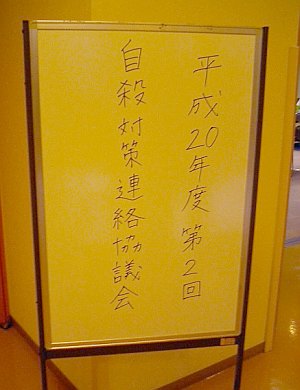 平成20年度第2回
自殺対策連絡協議会